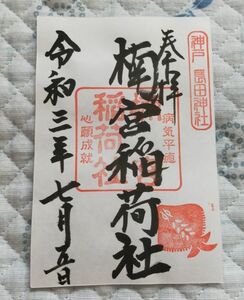 奉拝
神戸 長田神社
楠宮稲荷社
病気平癒
稲荷社
心願成就
令和三年七月五日